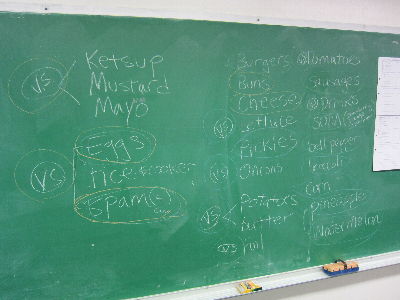 VS
Ketsup
Mustard
Mayo
VS
Eggs
rice
Spam
Burgers
Buns
Cheese
Lettuce
Pickles
Onions
VS
VS
Potatoes
butter
oil
VS
VS
Tomatoes
sausages
Drinks
SODA
bell pepper
broccoli
corn
pineapples
Watermelon